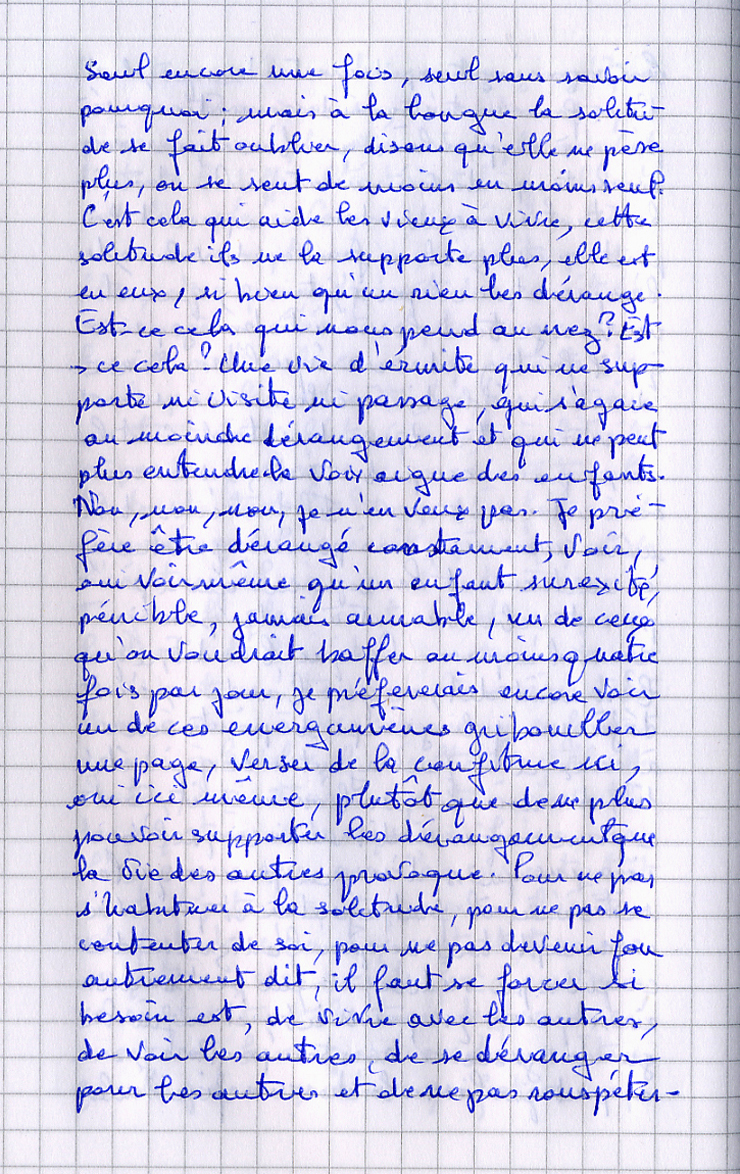 Seul encore une fois, seul sans savoir
pourquoi ; mais à la longue la solitu-
de se fait oublier, disons qu'elle ne pèse
plus, on se sent de moins en moins seul.
C'est cela qui aide les vieux à vivre, cette
solitude ils ne la supporte plus, elle est
en eux, si bien qu'un rien les dérange.
Est-ce cela qui nous pend au nez ? Est
-ce cela ? Une vie d'ermite qui ne sup-
porte ni visite ni passage, qui s'agace
au moindre dérangement et qui ne peut
plus entendre la voix aigue des enfants.
Non, non, non, je n'en veux pas. Je pré-
fère être dérangé constamment, voir,
oui voir même qu'un enfant surexité,
pénible, jamais aimable, un de ceux
qu'on voudrait baffer au moins quatre
fois par jour, je préfererais encore voir
un de ces energumènes gribouiller
une page, verser de la confiture ici,
oui ici même, plutôt que de ne plus
pouvoir supporter les dérangement que
la vie des autres provoque. Pour ne pas
s'habituer à la solitude, pour ne pas se
contenter de soi, pour ne pas devenir fou
autrement dit, il faut se forcer si
besoin est, de vivre avec les autres,
de voir les autres, de se déranger
pour les autres et de ne pas rouspéter.